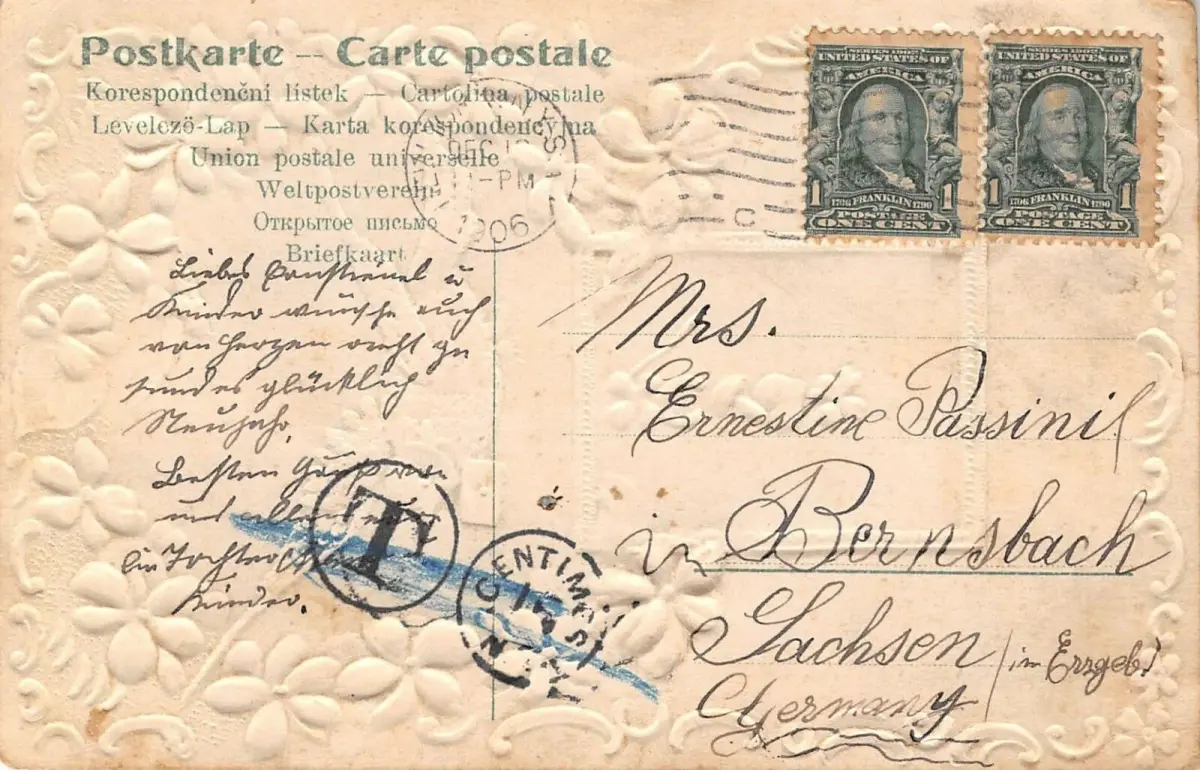 Postkarte — Carte postale
Korespondenční lístek — Cartolina postale
Levelező-Lap — Karta korespondencyjna
Union postale universelle
Weltpostverein
Открытое письмо
Briefkaart
DEC
-PM
1906
C
SERIES 1902
UNITED STATES OF
AMERICA
1 1706 FRANKLIN 1790 1
POSTAGE
ONE CENT
SERIES 1902
UNITED STATES OF
AMERICA
1 1706 FRANKLIN 1790 1
POSTAGE
ONE CENT
Liebes u
Kinder wünsche euch
von Herzen recht ge
sundes glücklich
Neujahr.
Besten Gruß von
uns allen
Tochter
Kinder.
T
CENTIMES
N.Y.
Mrs.
Ernestine Passinil
in Bernsbach
Sachsen / im Erzgeb!
Germany